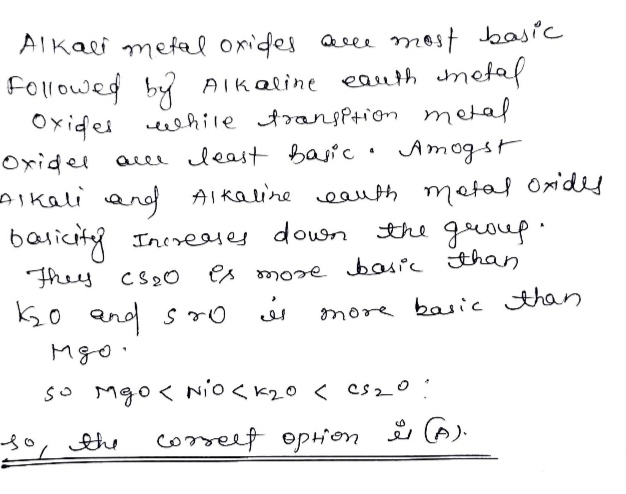 Alkali metal oxides are most basic
Followed by Alkaline earth metal
Oxides while transition metal
Oxides are least basic. Amogst
Alkali and Alkaline earth metal oxides
basicity Increases down the group.
Thus Cs2O is more basic than
K2O and SrO is more basic than
MgO.
so MgO < NiO < K2O < Cs2O :
so, the correct option is (A).